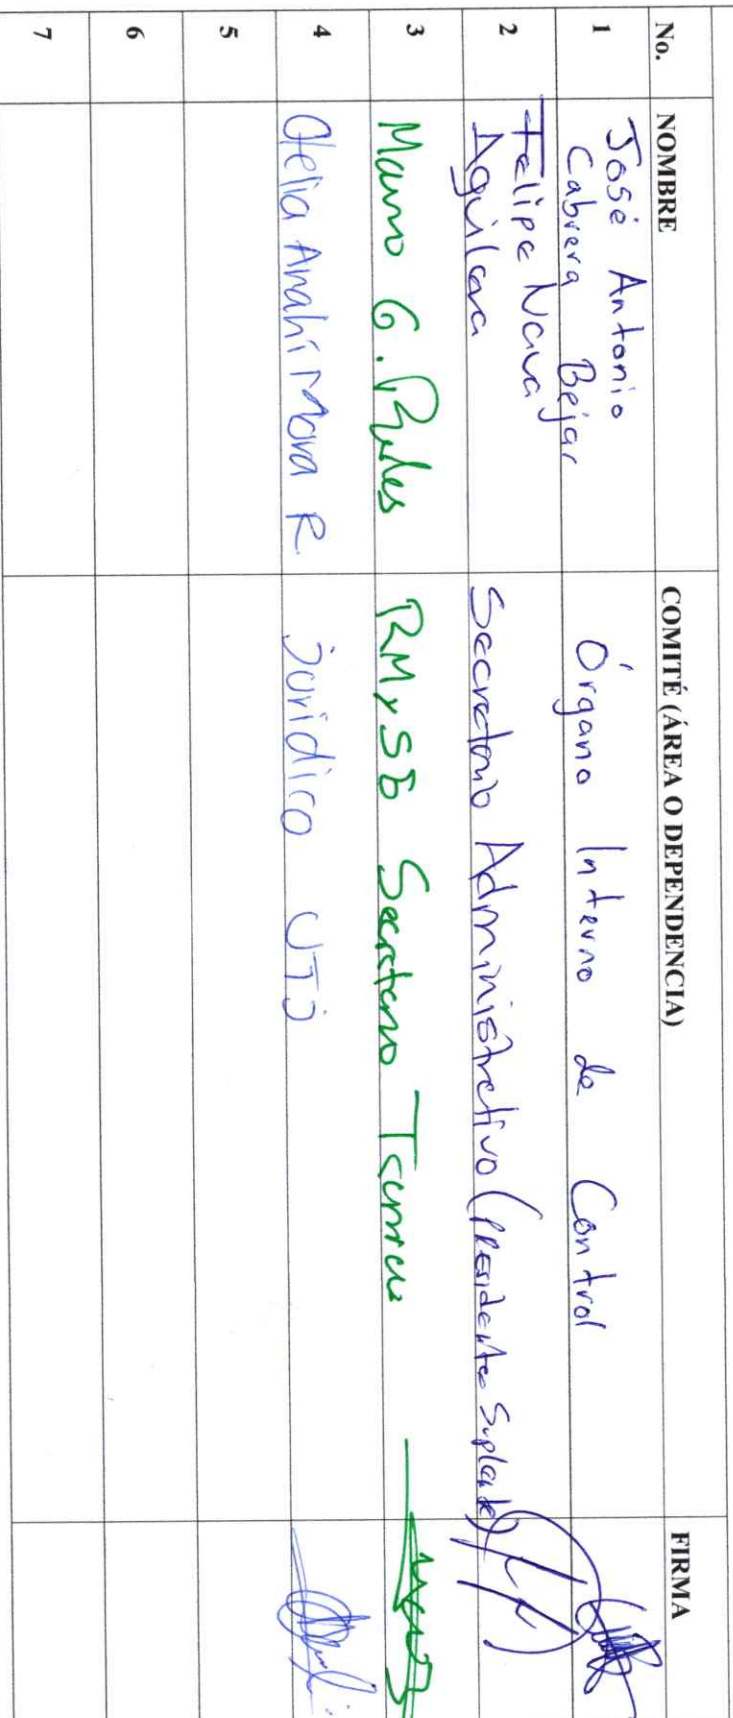 No. NOMBRE COMITÉ (ÁREA O DEPENDENCIA) FIRMA
1 José Antonio
Cabrera Bejar Órgano Interno de Control
2 Felipe Nava
Aguilera Secretario Administrativo (Presidente Suplente)
3 Mauro G. RMySG Secretario Tecnico
4 Ofelia Anahí Mora R Jurídico UTJ
5
6
7